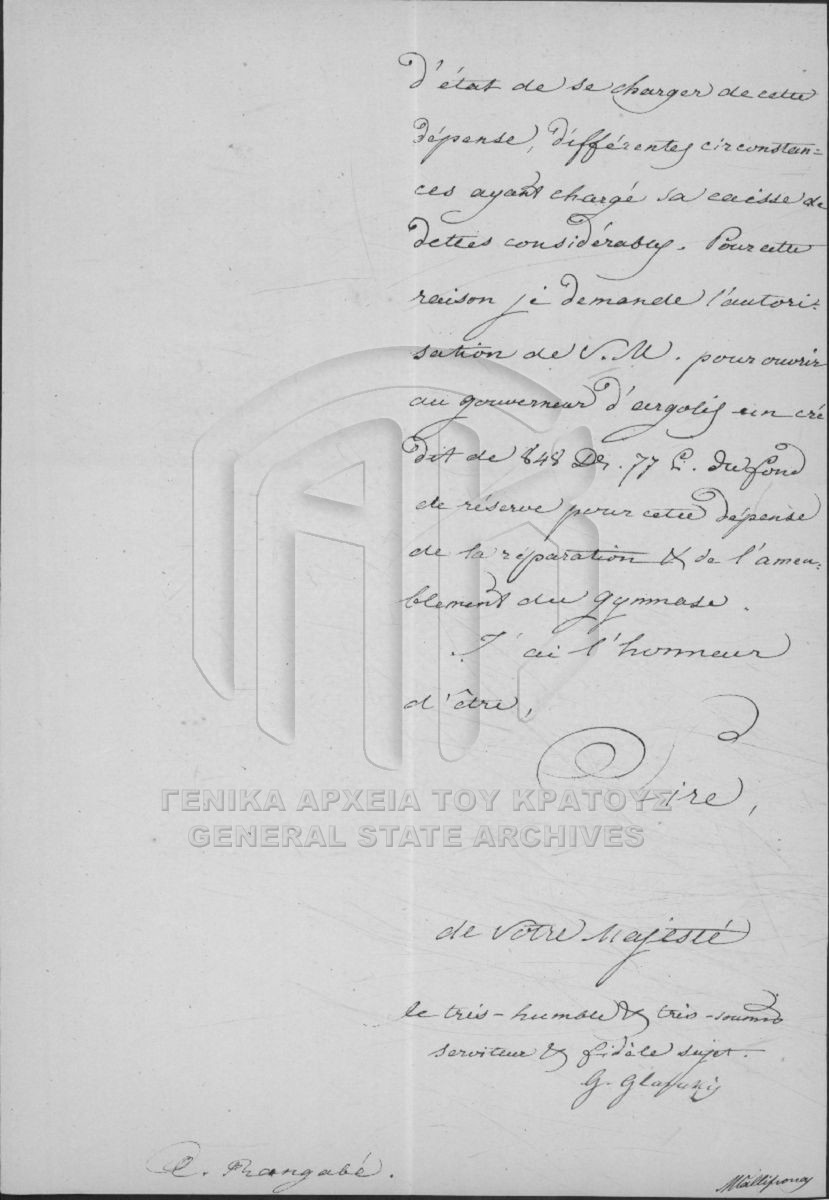 d'état de se charger de cette
dépense, différentes circonstan=
ces ayant chargé sa caisse de
dettes considérables. Pour cette
raison je demande l'autori=
sation de V. M. pour ouvrir
au gouverneur d'Argolis un cré
dit de 848 Dr. 77 L. du fond
de réserve pour cette dépense
de la réparation & de l'ameu=
blement du gymnase.
J'ai l'honneur
d'être,
Sire,
ΓΕΝΙΚΑ ΑΡΧΕΙΑ ΤΟΥ ΚΡΑΤΟΥΣ
GENERAL STATE ARCHIVES
de Votre Majesté
le très-humble & très-soumis
serviteur & fidèle sujet.
G. Glarakis
Rangabé.